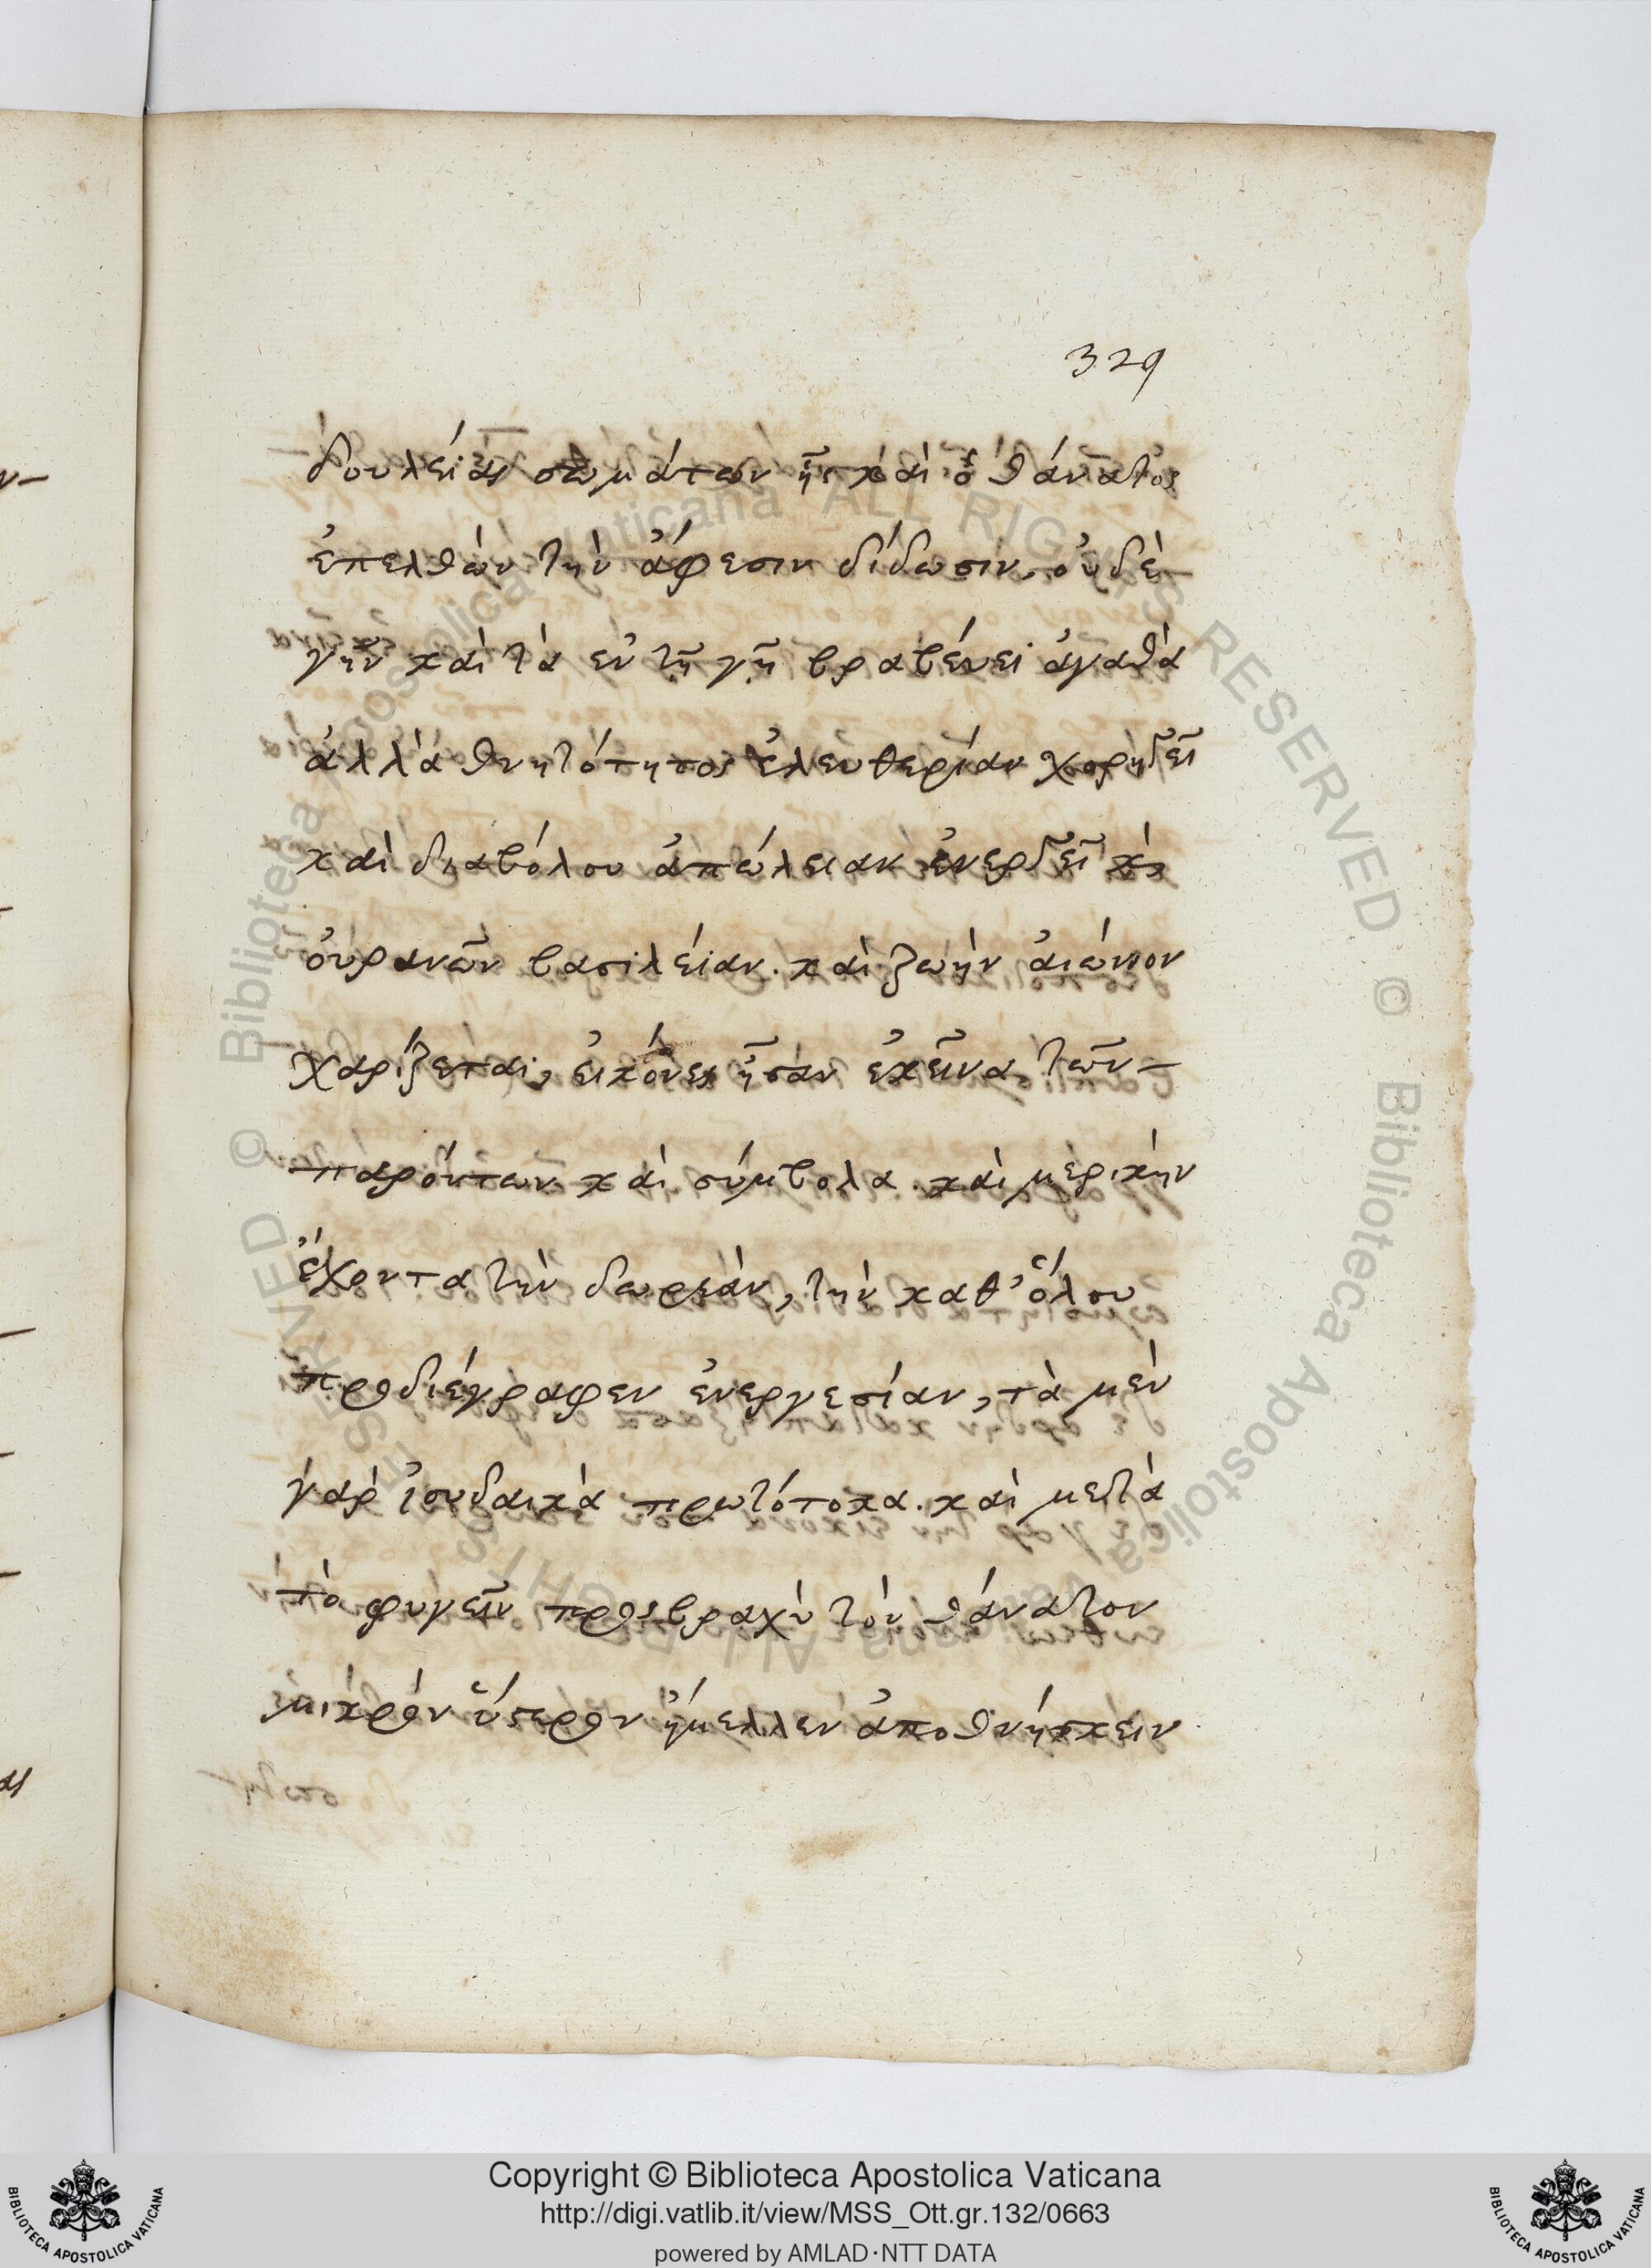 329
δουλείας σωμάτων ἧς καὶ ὁ θάνατος
ἐπελθὼν τὴν ἄφεσιν δίδωσιν, οὐδὲ
γῆν καὶ τὰ ἐν τῇ γῇ βραβεύει ἀγαθὰ
ἀλλὰ θνητότητος ἐλευθερίαν χορηγεῖ
καὶ διαβόλου ἀπώλειαν ἐνεργεῖ καὶ
οὐρανῶν βασιλείαν. καὶ ζωὴν αἰώνιον
χαρίζεται, εἰκόνες ἦσαν ἐκεῖνα τῶν
παρόντων καὶ σύμβολα. καὶ μερικὴν
ἔχοντα τὴν δωρεὰν, τὴν καθ' ὅλου
προδιέγραφεν ἐνεργεσίαν, τὰ μὲν
γὰρ ἰουδαικὰ πρωτότοκα. καὶ μετὰ
τὸ φυγεῖν πρὸς βραχὺ τὸν θάνατον
μικρὸν ὕστερον ἤμελλεν ἀποθνήσκειν
Copyright © Biblioteca Apostolica Vaticana
http://digi.vatlib.it/view/MSS_Ott.gr.132/0663
powered by AMLAD·NTT DATA
BIBLIOTECA APOSTOLICA VATICANA
BIBLIOTECA APOSTOLICA VATICANA
© Biblioteca Apostolica Vaticana ALL RIGHTS RESERVED
© Biblioteca Apostolica Vaticana ALL RIGHTS RESERVED